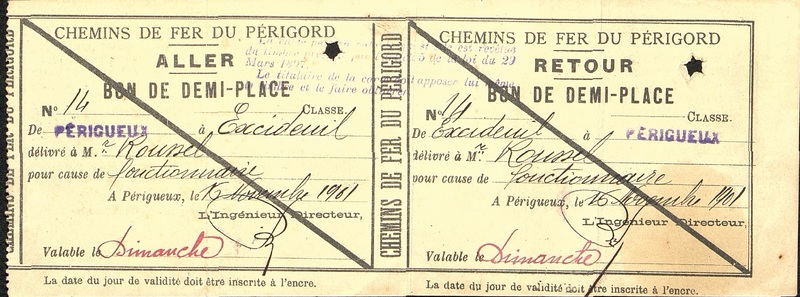 CHEMINS DE FER DU PÉRIGORD
ALLER
Mars 18
Le titulaire de la
BON DE DEMI-PLACE
N° 14 CLASSE.
De PÉRIGUEUX à Excideuil
délivré à M.r Roussel
pour cause de fonctionnaire
A Périgueux, le 15 Novembre 1901
L'Ingénieur Directeur,
Valable le Dimanche
La date du jour de validité doit être inscrite à l'encre.
CHEMINS DE FER DU PÉRIGORD
CHEMINS DE FER DU PÉRIGORD
est revêtu
loi du 29
RETOUR
apposer lui même
et le faire
BON DE DEMI-PLACE
N° 14 CLASSE.
De Excideuil à PÉRIGUEUX
délivré à M.r Roussel
pour cause de fonctionnaire
A Périgueux, le 15 Novembre 1901
L'Ingénieur Directeur,
Valable le Dimanche
La date du jour de validité doit être inscrite à l'encre.